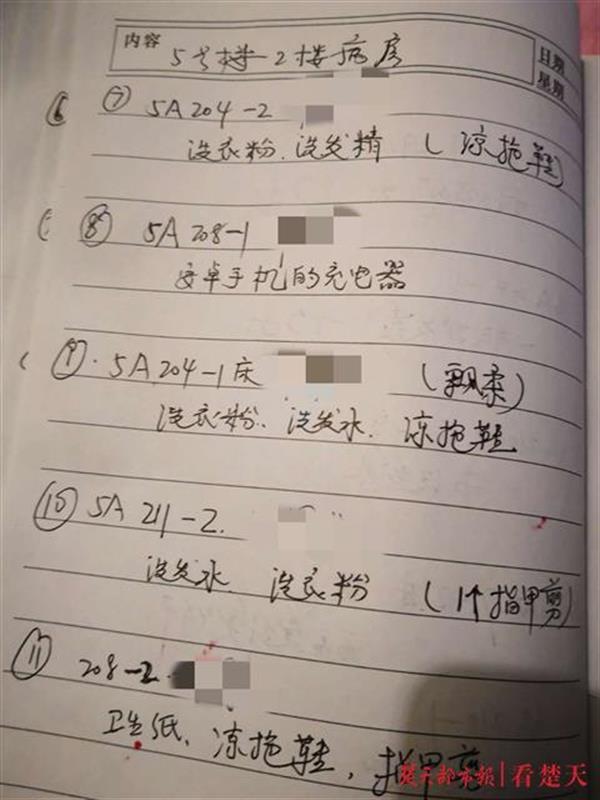 内容 5号楼2楼病房
日期
星期
⑦ 5A204-2
洗衣粉.洗发精 ( 凉拖鞋)
⑧ 5A 208-1
安卓手机的充电器
⑨. 5A204-1床 (飘柔)
洗衣粉. 洗发水. 凉拖鞋
⑩ 5A 211-2.
洗发水. 洗衣粉 (1个指甲剪)
⑪ 208-2.
卫生纸、凉拖鞋,指甲剪
楚天都市报|看楚天